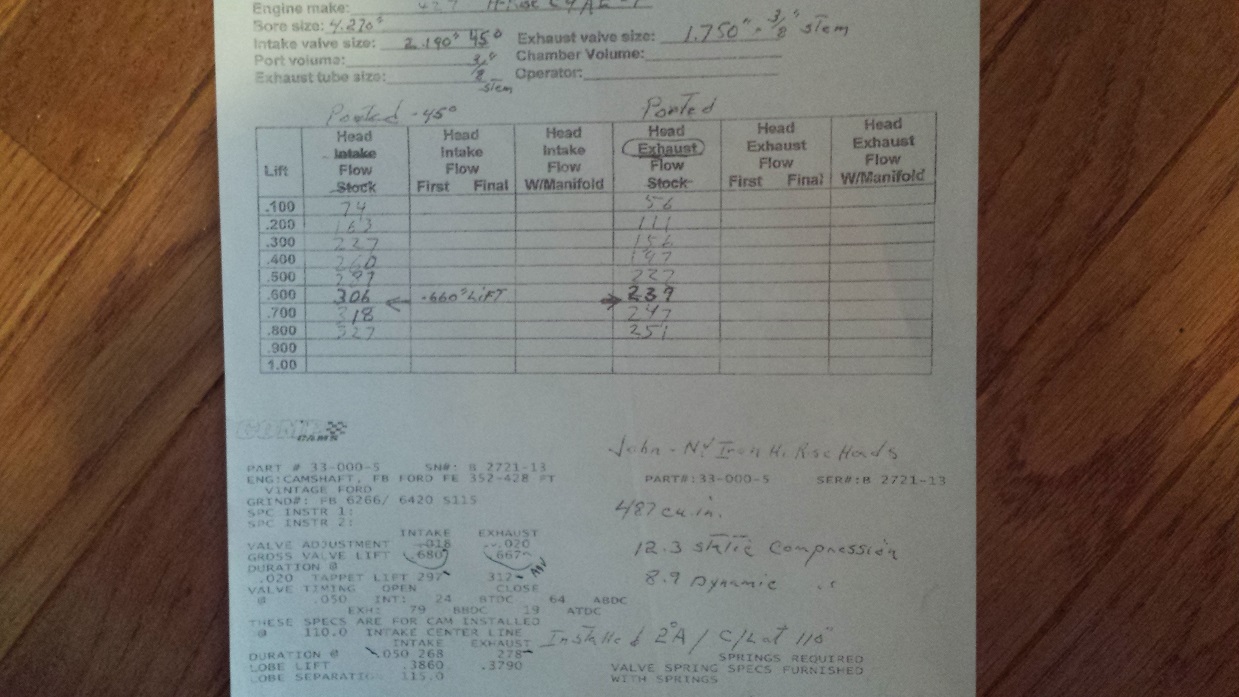 Engine make: 427 H-Rise
Bore size: 4.270"
Intake valve size: 2.190" 45° Exhaust valve size: 1.750" - 3/8" stem
Port volume: 3/8" stem Chamber Volume:
Exhaust tube size: Operator:
Ported - 45° Ported
Lift Head Intake Flow Stock Head Intake Flow First Final Head Intake Flow W/Manifold Head Exhaust Flow Stock Head Exhaust Flow First Final Head Exhaust Flow W/Manifold
.100 74 56
.200 163 111
.300 227 156
.400 260 197
.500 227
.600 306 .660" LIFT 237
.700 318 247
.800 327 251
.900
1.00
COMP CAMS
John - NY Iron Hi Rise Heads
PART # 33-000-5 SN#: B 2721-13
ENG:CAMSHAFT, FB FORD FE 352-428 PT PART#:33-000-5 SER#:B 2721-13
VINTAGE FORD
GRIND#: FB 6266/ 6420 S115
SPC INSTR 1: 487 cu.in.
SPC INSTR 2:
INTAKE EXHAUST
VALVE ADJUSTMENT .018 .020
GROSS VALVE LIFT .680 .667 12.3 static Compression
DURATION @
.020 TAPPET LIFT 297 312 8.9 Dynamic
VALVE TIMING OPEN CLOSE
@ .050 INT: 24 BTDC 64 ABDC
EXH: 79 BBDC 19 ATDC
THESE SPECS ARE FOR CAM INSTALLED
@ 110.0 INTAKE CENTER LINE Installed 2°A / C/L at 110°
INTAKE EXHAUST
DURATION @ .050 268 278 SPRINGS REQUIRED
LOBE LIFT .3860 .3790 VALVE SPRING SPECS FURNISHED
LOBE SEPARATION 115.0 WITH SPRINGS